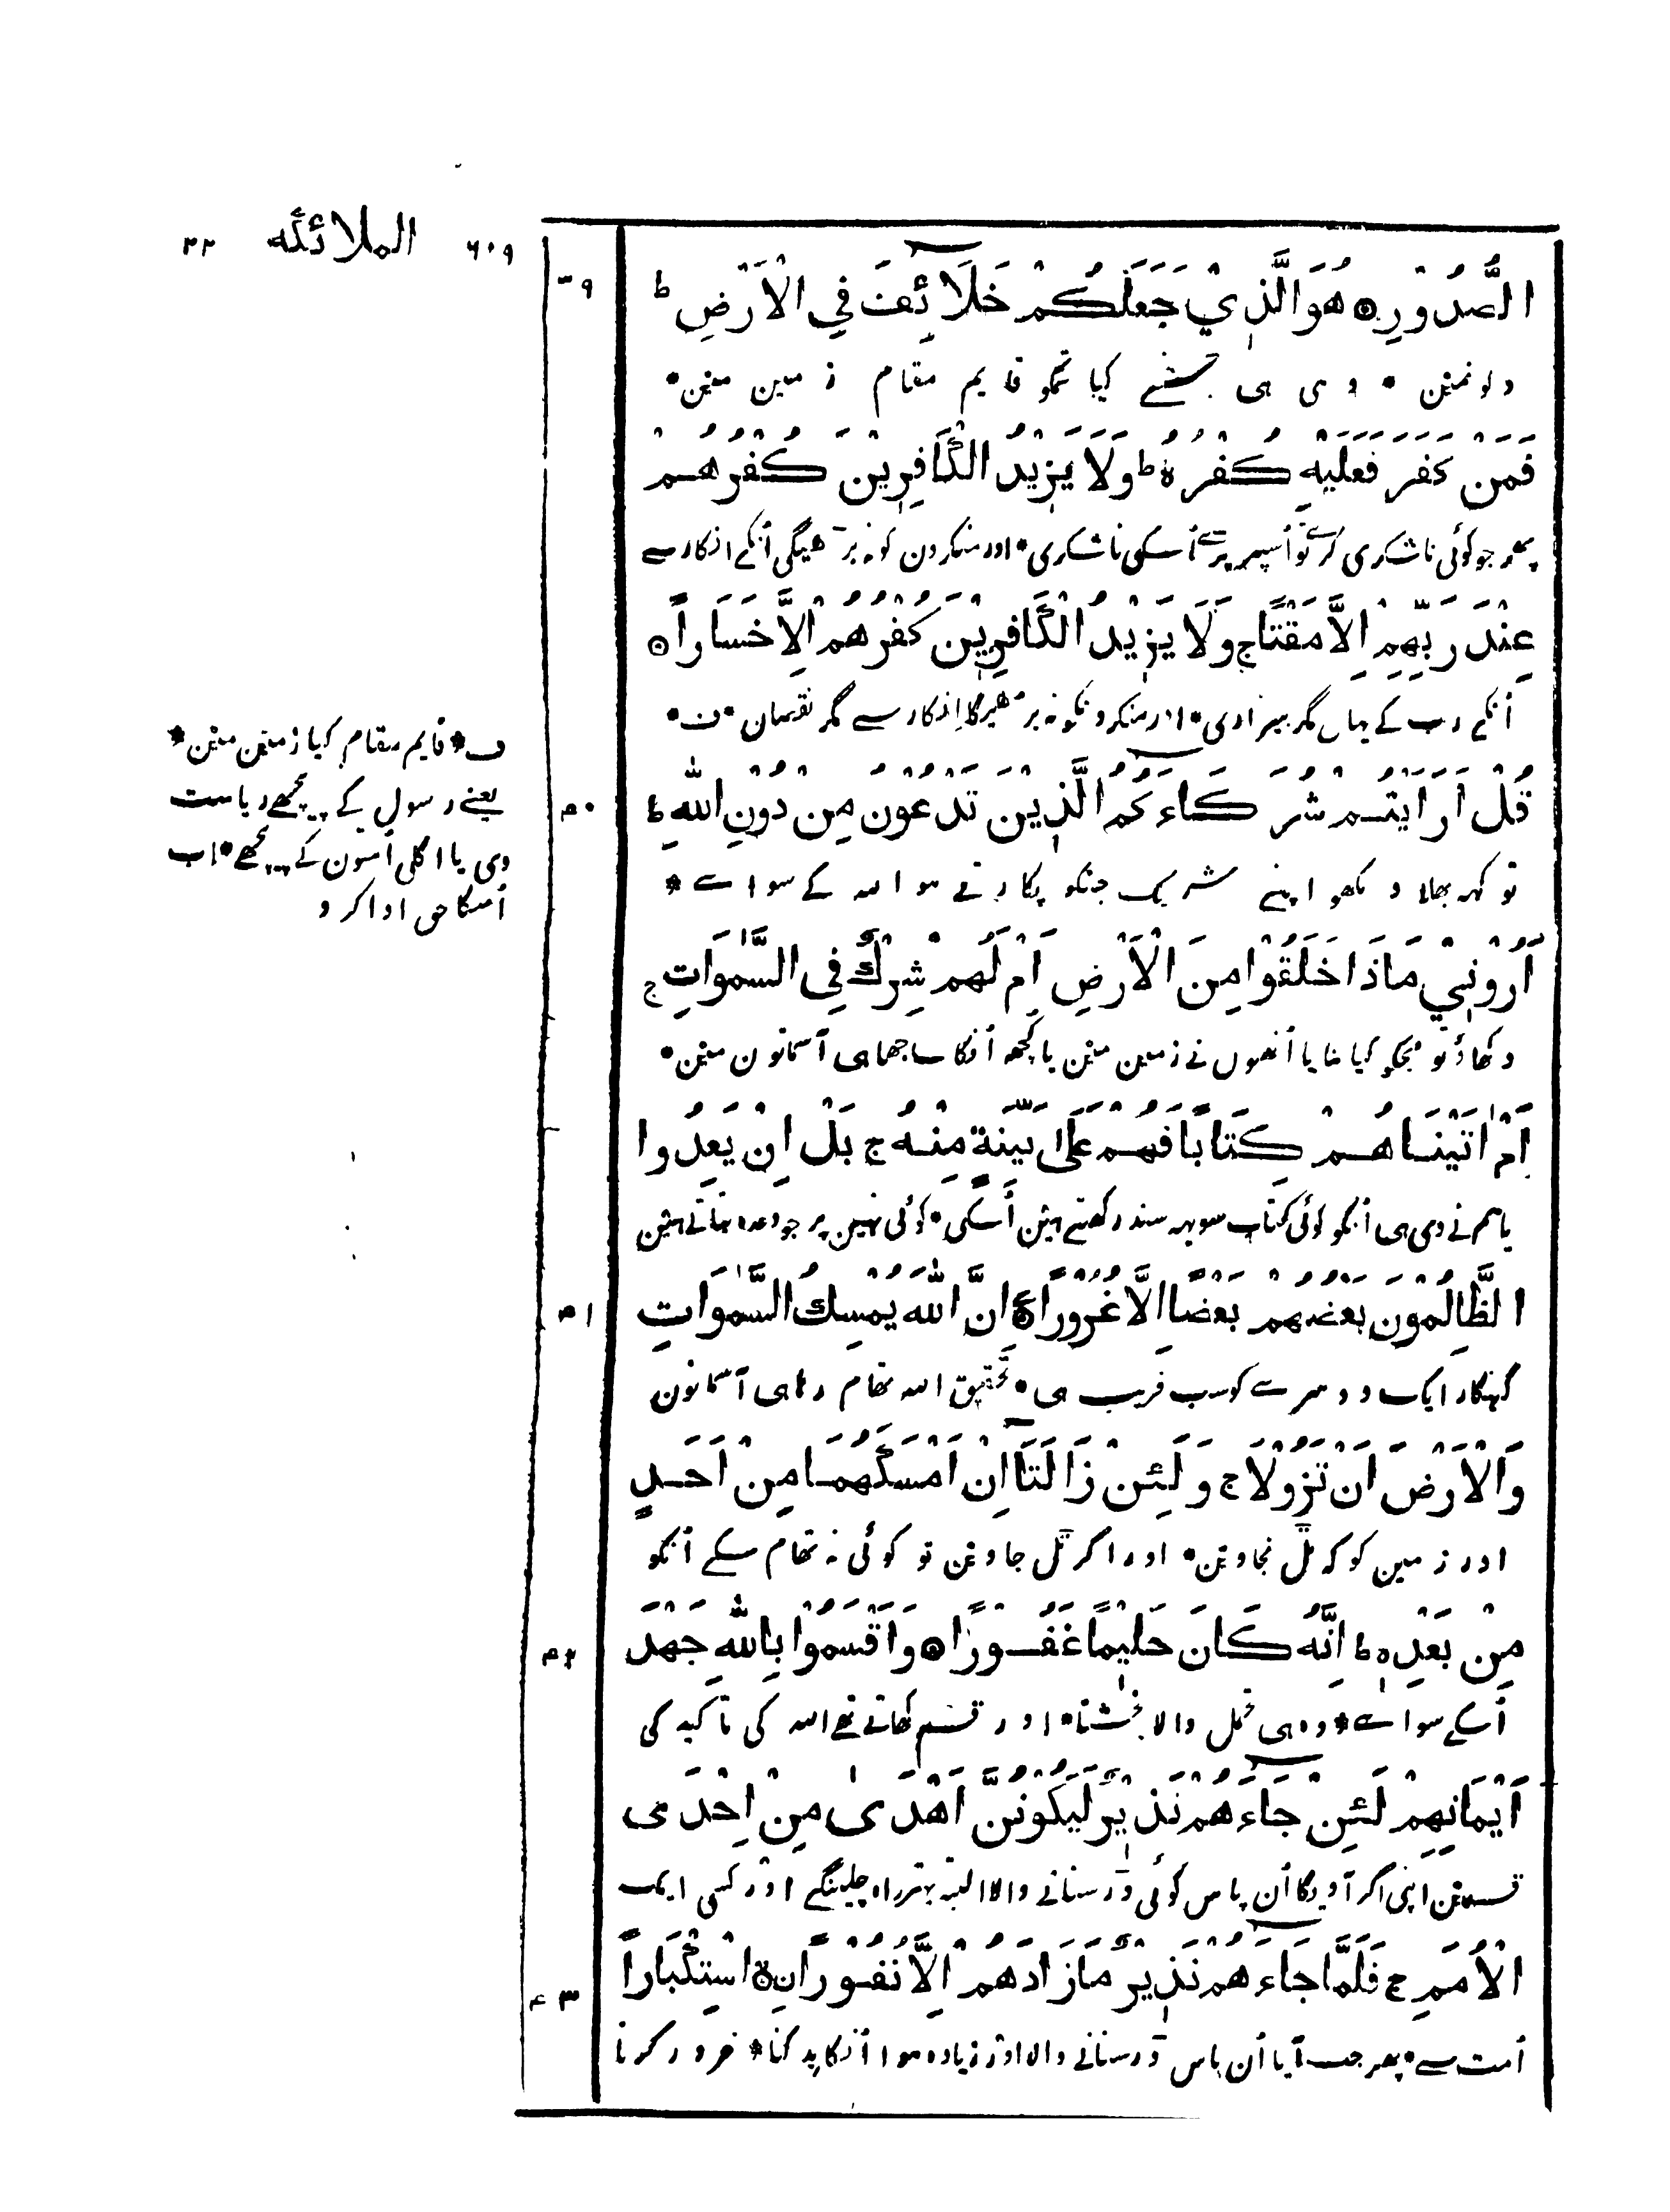 ۶۰۹ الملائكه ۲۲
۳۹
الصُّدُوْرِ۝ هُوَ الَّذِيْ جَعَلَكُمْ خَلَائِفَ فِي الْاَرْضِ ط
دلونمین • وہی ہی جسنے کیا تمکو قایم مقام زمین مین •
فَمَنْ كَفَرَ فَعَلَيْهِ كُفْرُهُ ط وَلَا يَزِيْدُ الْكَافِرِيْنَ كُفْرُهُمْ
پھر جو کوئی ناشکری کرے تو اُسپر پرے اُسکی ناشکری • اور منکرون کو نہ بڑھیگی اُنکے انکار سے
عِنْدَ رَبِّهِمْ اِلَّا مَقْتًا ج وَلَا يَزِيْدُ الْكَافِرِيْنَ كُفْرُهُمْ اِلَّا خَسَارًا ۝
اُنکے رب کے یہاں مگر بیزاری • اور منکرونکو نہ بڑھیگا اِنکار سے مگر نقصان • ف •
ف * قایم مقام کیا زمین مین *
یعنے رسول کے پیچھے ریاست
دی یا اگلی اُمتون کے پیچھے • اب
اُسکا حق ادا کرو
۴۰
قُلْ اَرَاَيْتُمْ شُرَكَاءَكُمُ الَّذِيْنَ تَدْعُوْنَ مِنْ دُوْنِ اللّٰهِ ط
تو کہہ بھلا دیکھو اپنے شریک جنکو پکارتے ہو اللہ کے سواے *
اَرُوْنِيْ مَاذَا خَلَقُوْا مِنَ الْاَرْضِ اَمْ لَهُمْ شِرْكٌ فِي السَّمٰوَاتِ ج
دکھاؤ تو مجکو کیا بنایا اُنھوں نے زمین مین یا کچھہ اُنکا ساجھا ہی آسمانون مین •
اَمْ اٰتَيْنَاهُمْ كِتَابًا فَهُمْ عَلٰى بَيِّنَةٍ مِنْهُ ج بَلْ اِنْ يَعِدُ وا
یا ہم نے دی ہی اُنکو کوئی کتاب سو یہہ سند رکھتے ہین اُسکی • کوئی نہین پر جو وعدہ بتاتے ہین
۴۱
الظَّالِمُوْنَ بَعْضُهُمْ بَعْضًا اِلَّا غُرُوْرًا۝ اِنَّ اللّٰهَ يُمْسِكُ السَّمٰوَاتِ
گنہگار ایک دوسرے کو سب فریب ہی • تحقیق اللہ تھام رہا ہی آسمانون
وَالْاَرْضَ اَنْ تَزُوْلَا ج وَلَئِنْ زَالَتَا اِنْ اَمْسَكَهُمَا مِنْ اَحَدٍ
اور زمین کو کہ ٹل نجاوین • اور اگر ٹل جاوین تو کوئی نہ تھام سکے اُنکو
۴۲
مِنْ بَعْدِهٖ ط اِنَّهُ كَانَ حَلِيْمًا غَفُوْرًا۝ وَاَقْسَمُوْا بِاللّٰهِ جَهْدَ
اُسکے سواے * وہ ہی تحمل والا بخشتا • اور قسم کھاتے تھے اللہ کی تاکید کی
اَيْمَانِهِمْ لَئِنْ جَاءَهُمْ نَذِيْرٌ لَيَكُوْنُنَّ اَهْدٰى مِنْ اِحْدَى
قسمین اپنی اگر آویگا اُن پاس کوئی ڈر سنانے والا البتہ بہتر راہ چلینگے اور کسی ایک
۴۳
الْاُمَمِ ج فَلَمَّا جَاءَهُمْ نَذِيْرٌ مَازَادَهُمْ اِلَّا نُفُوْرًا نِ اسْتِكْبَارًا
اُمت سے • پھر جب آیا اُن پاس ڈر سنانے والا اور زیادہ ہوا اُنکا بدکنا * غرور کرنا